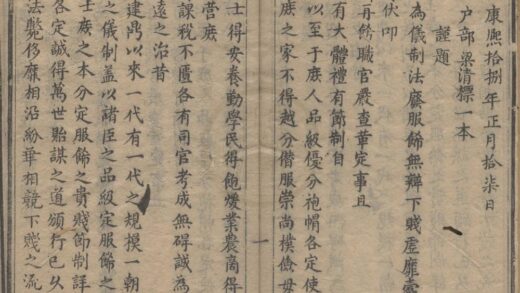 康熙拾捌年正月拾柒日
户部梁清標一本
謹題
為儀制法廢服飾無辯下賤虛靡
伏叩
再飭職官嚴查葷定事且
有大體禮有節制自
以至于庶人品級優分袍帽各定使
庶之家不得越分僭服崇尚樸儉毋
一
士得安養勤學民得飽煖業農商得
營庶
課稅不匱各有司官考成無碍誠為
遠之治昔
建鼎以來一代有一代之規模一朝
之儀制蓋以諸臣之品級定服飾之
士庶之本分定服飾之貴賤節制詳
各定誠得萬世貽謀之道頒行已久
法斃仍靡相沿紛華相競下賤之流